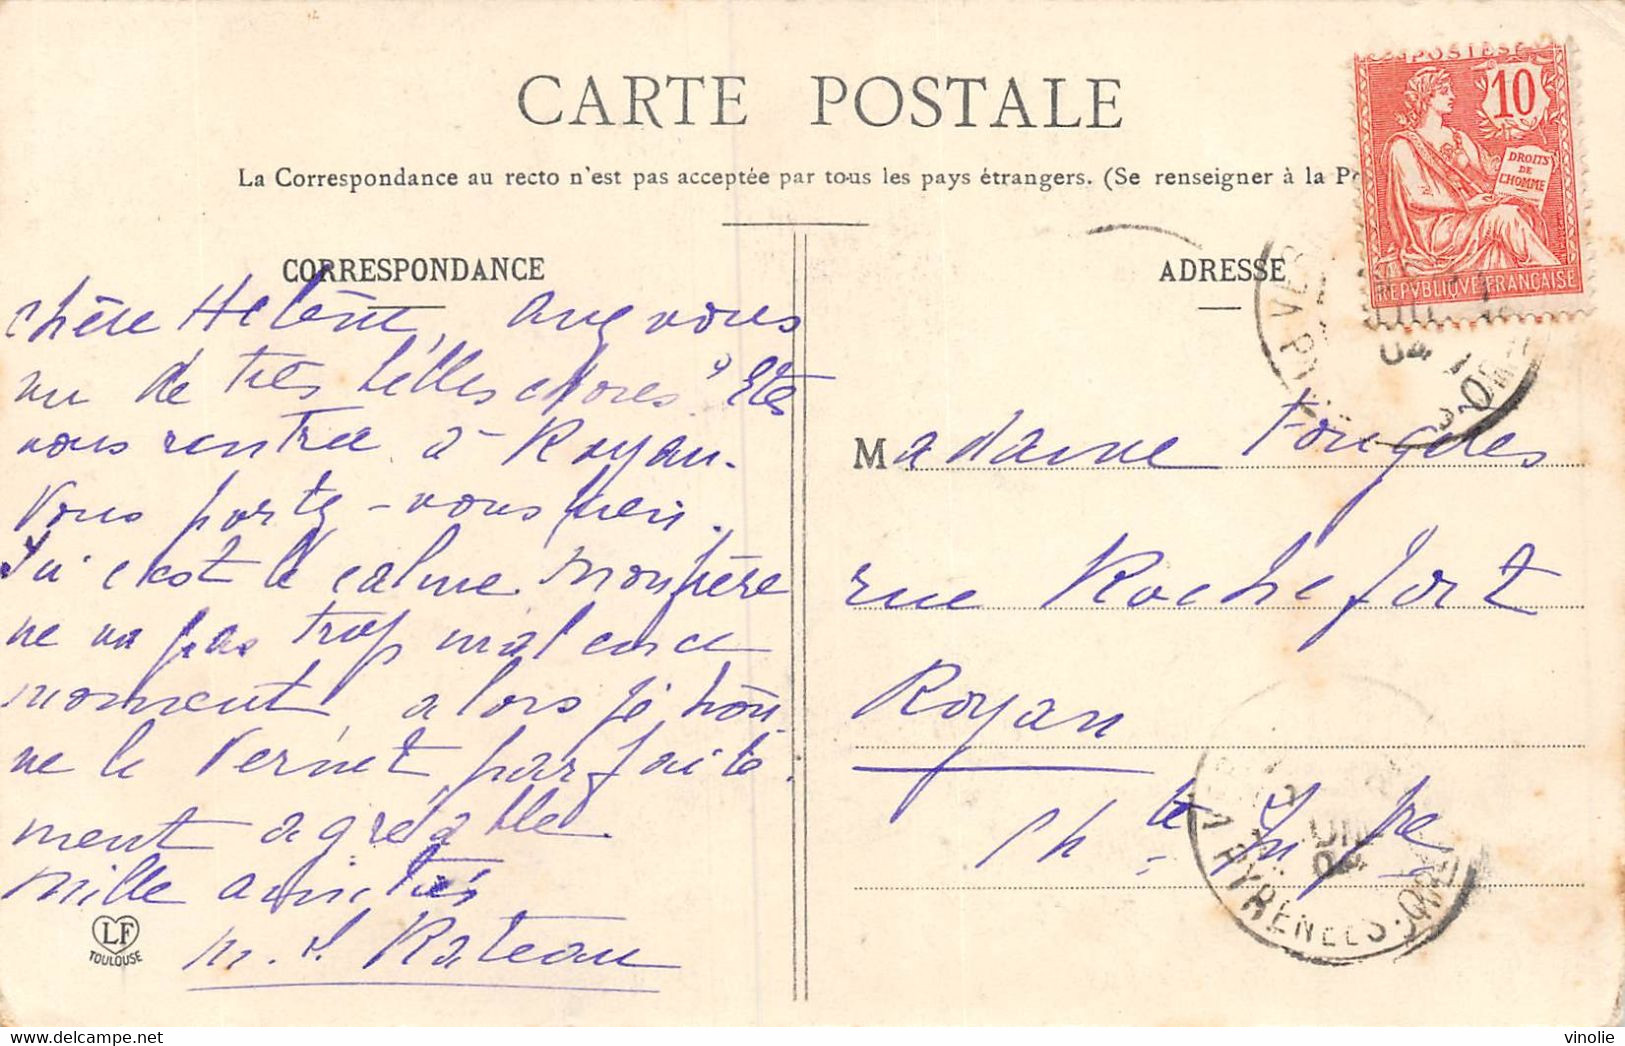 CARTE POSTALE
La Correspondance au recto n'est pas acceptée par tous les pays étrangers. (Se renseigner à la P
POSTES
10
DROITS
DE
L'HOMME
REPVBLIQVE FRANÇAISE
CORRESPONDANCE
chère Helène,
vous
vu de très belles choses? Etes
vous rentrée à Royan.
Vous portez-vous bien.
c'est le calme. Mon père
ne va pas trop mal en ce
moment, alors je trou
ve le Vernet parfaite
ment agréable.
Mille amitiés
M. L Rateau
LF
TOULOUSE
ADRESSE
Madame Fougères
rue Rochefort
Royan
Ch te Infre
JUIN
04
PYRENEES-OR
04
vinolie